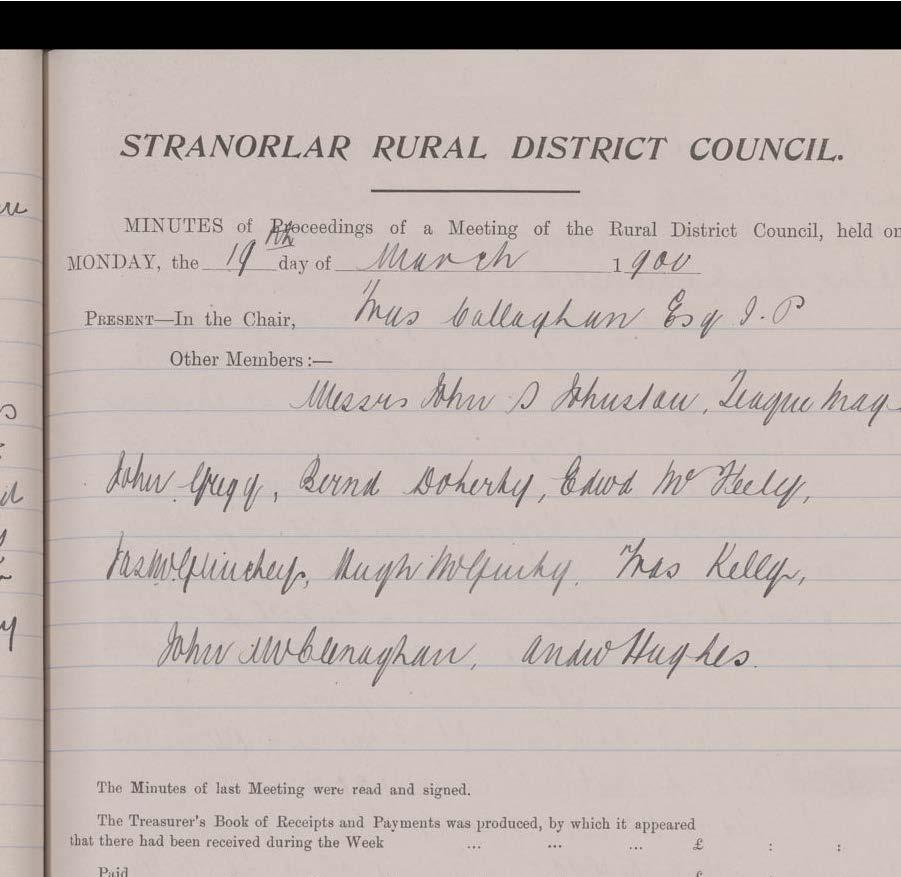 STRANORLAR RURAL DISTRICT COUNCIL.
MINUTES of Proceedings of a Meeting of the Rural District Council, held on
MONDAY, the 19th day of March 1900
PRESENT—In the Chair, Thos Callaghan Esq J. P
Other Members:—
Messrs John S Johnston, Teague Mag
John Gregg, Bernd Doherty, Edwd McFeely,
Jas McGlinchey, Hugh McGinty. Thos Kelly,
John McClenaghan, Andw Hughes.
The Minutes of last Meeting were read and signed.
The Treasurer's Book of Receipts and Payments was produced, by which it appeared
that there had been received during the Week ... ... ... £ : :
Paid £